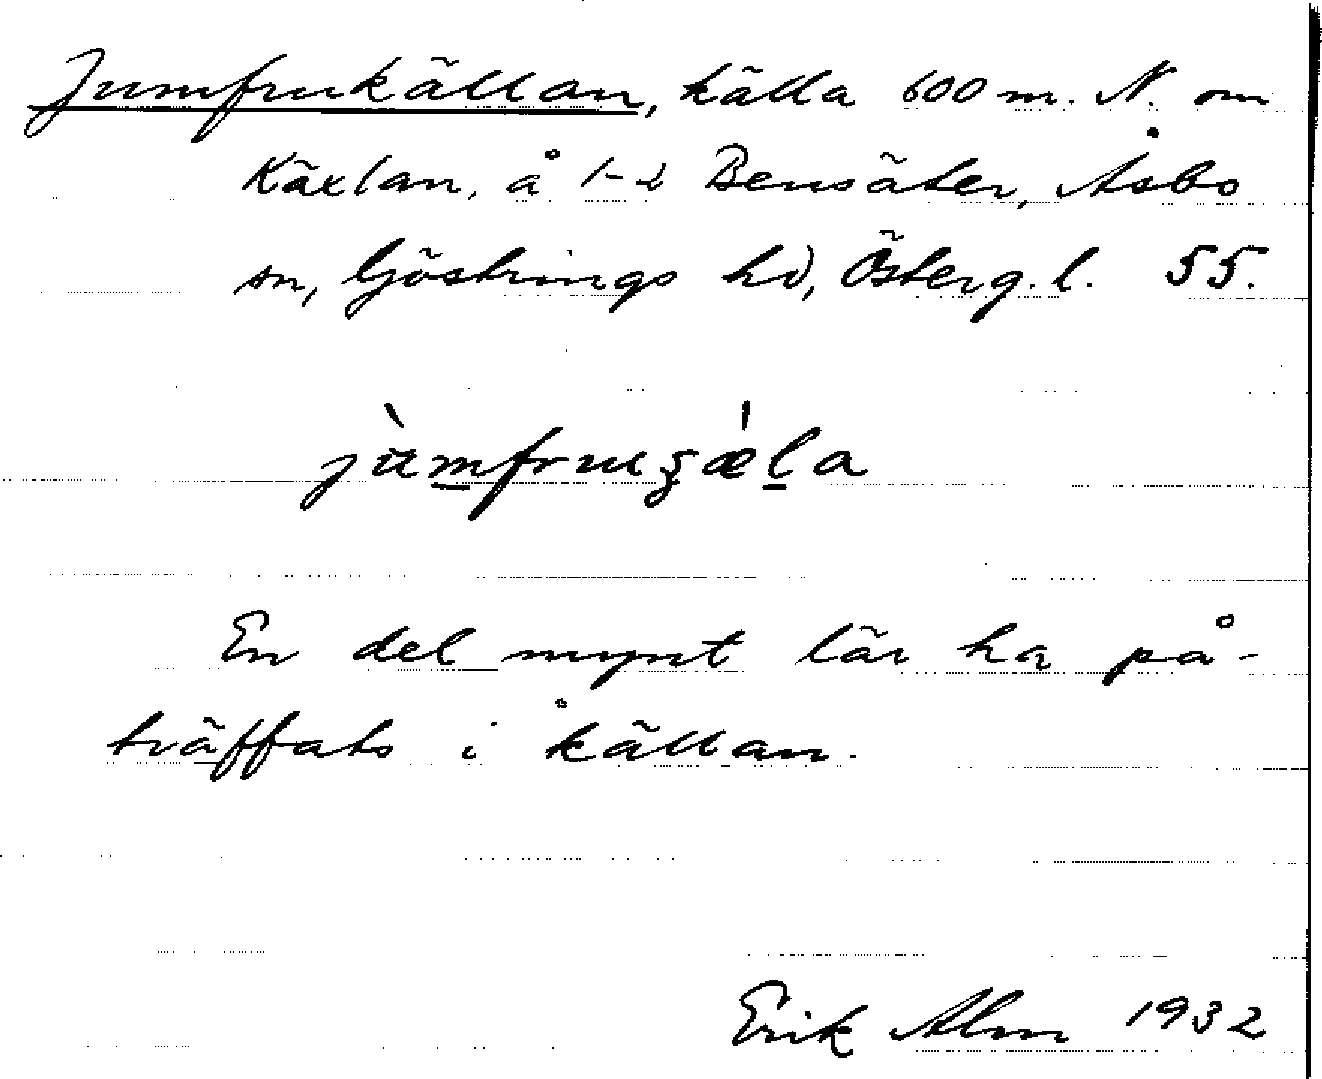 Jumfrukällan, källa 600 m. N. om
Käxlan, å 1-2 Bensäter, Åsbo
sn, Göstrings hd, Österg. l. 55.
jùmfruʒæ̀la
En del mynt lär ha på-
träffats i källan.
Erik Alm 1932